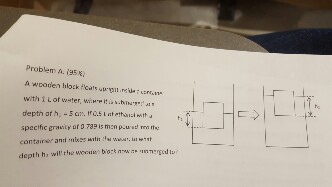 Problem A. (95%)
A wooden block floats upright inside a container
with 1 L of water, where it is submerged to a
depth of h₁ = 5 cm. If 0.5 L of ethanol with a
specific gravity of 0.789 is then poured into the
container and mixes with the water, to what
depth h₂ will the wooden block now be submerged to?
h₁
h₂